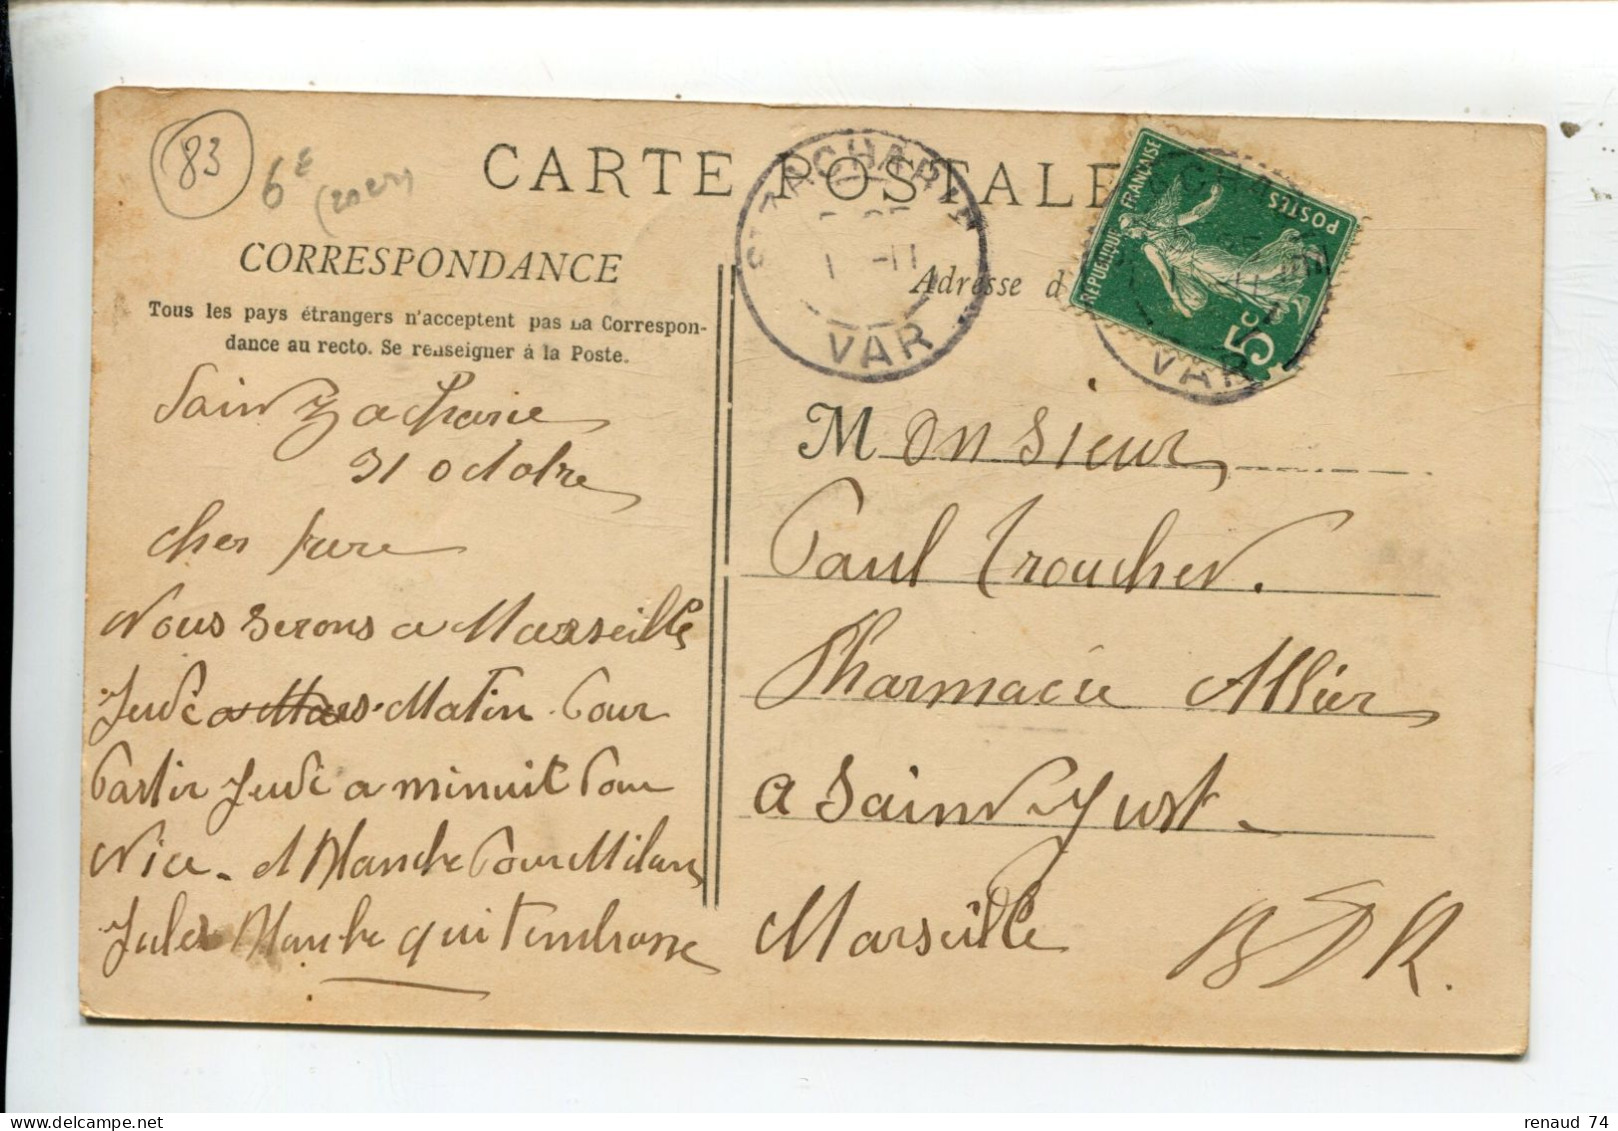 83
6€
CARTE POSTALE
ST ZACHARIE
1 -11
VAR
REPUBLIQUE FRANÇAISE
POSTES
5c
VAR
CORRESPONDANCE
Tous les pays étrangers n'acceptent pas la Correspon-
dance au recto. Se renseigner à la Poste.
Adresse d
Sain Zacharie
31 octobre
cher frere
Nous serons a Marseille
Jeudi a Mars Matin Pour
Partir Jeudi a minuit Pour
Nice - et Manche Pour Milan
Jules Manche qui t'embrasse
Monsieur
Paul Trouchet.
Pharmacie Allier
a Saint Just -
Marseille BDR.
renaud 74